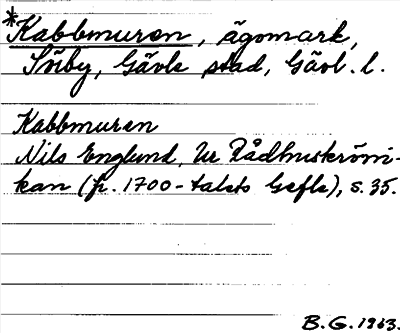 *Kabbmuren, ägomark,
Söby, Gävle stad, Gävl. l.
Kabbmuren
Nils Englund, Ur Rådhuskröni-
kan (fr. 1700-talets Gefle), s. 35.
B.G. 1963.